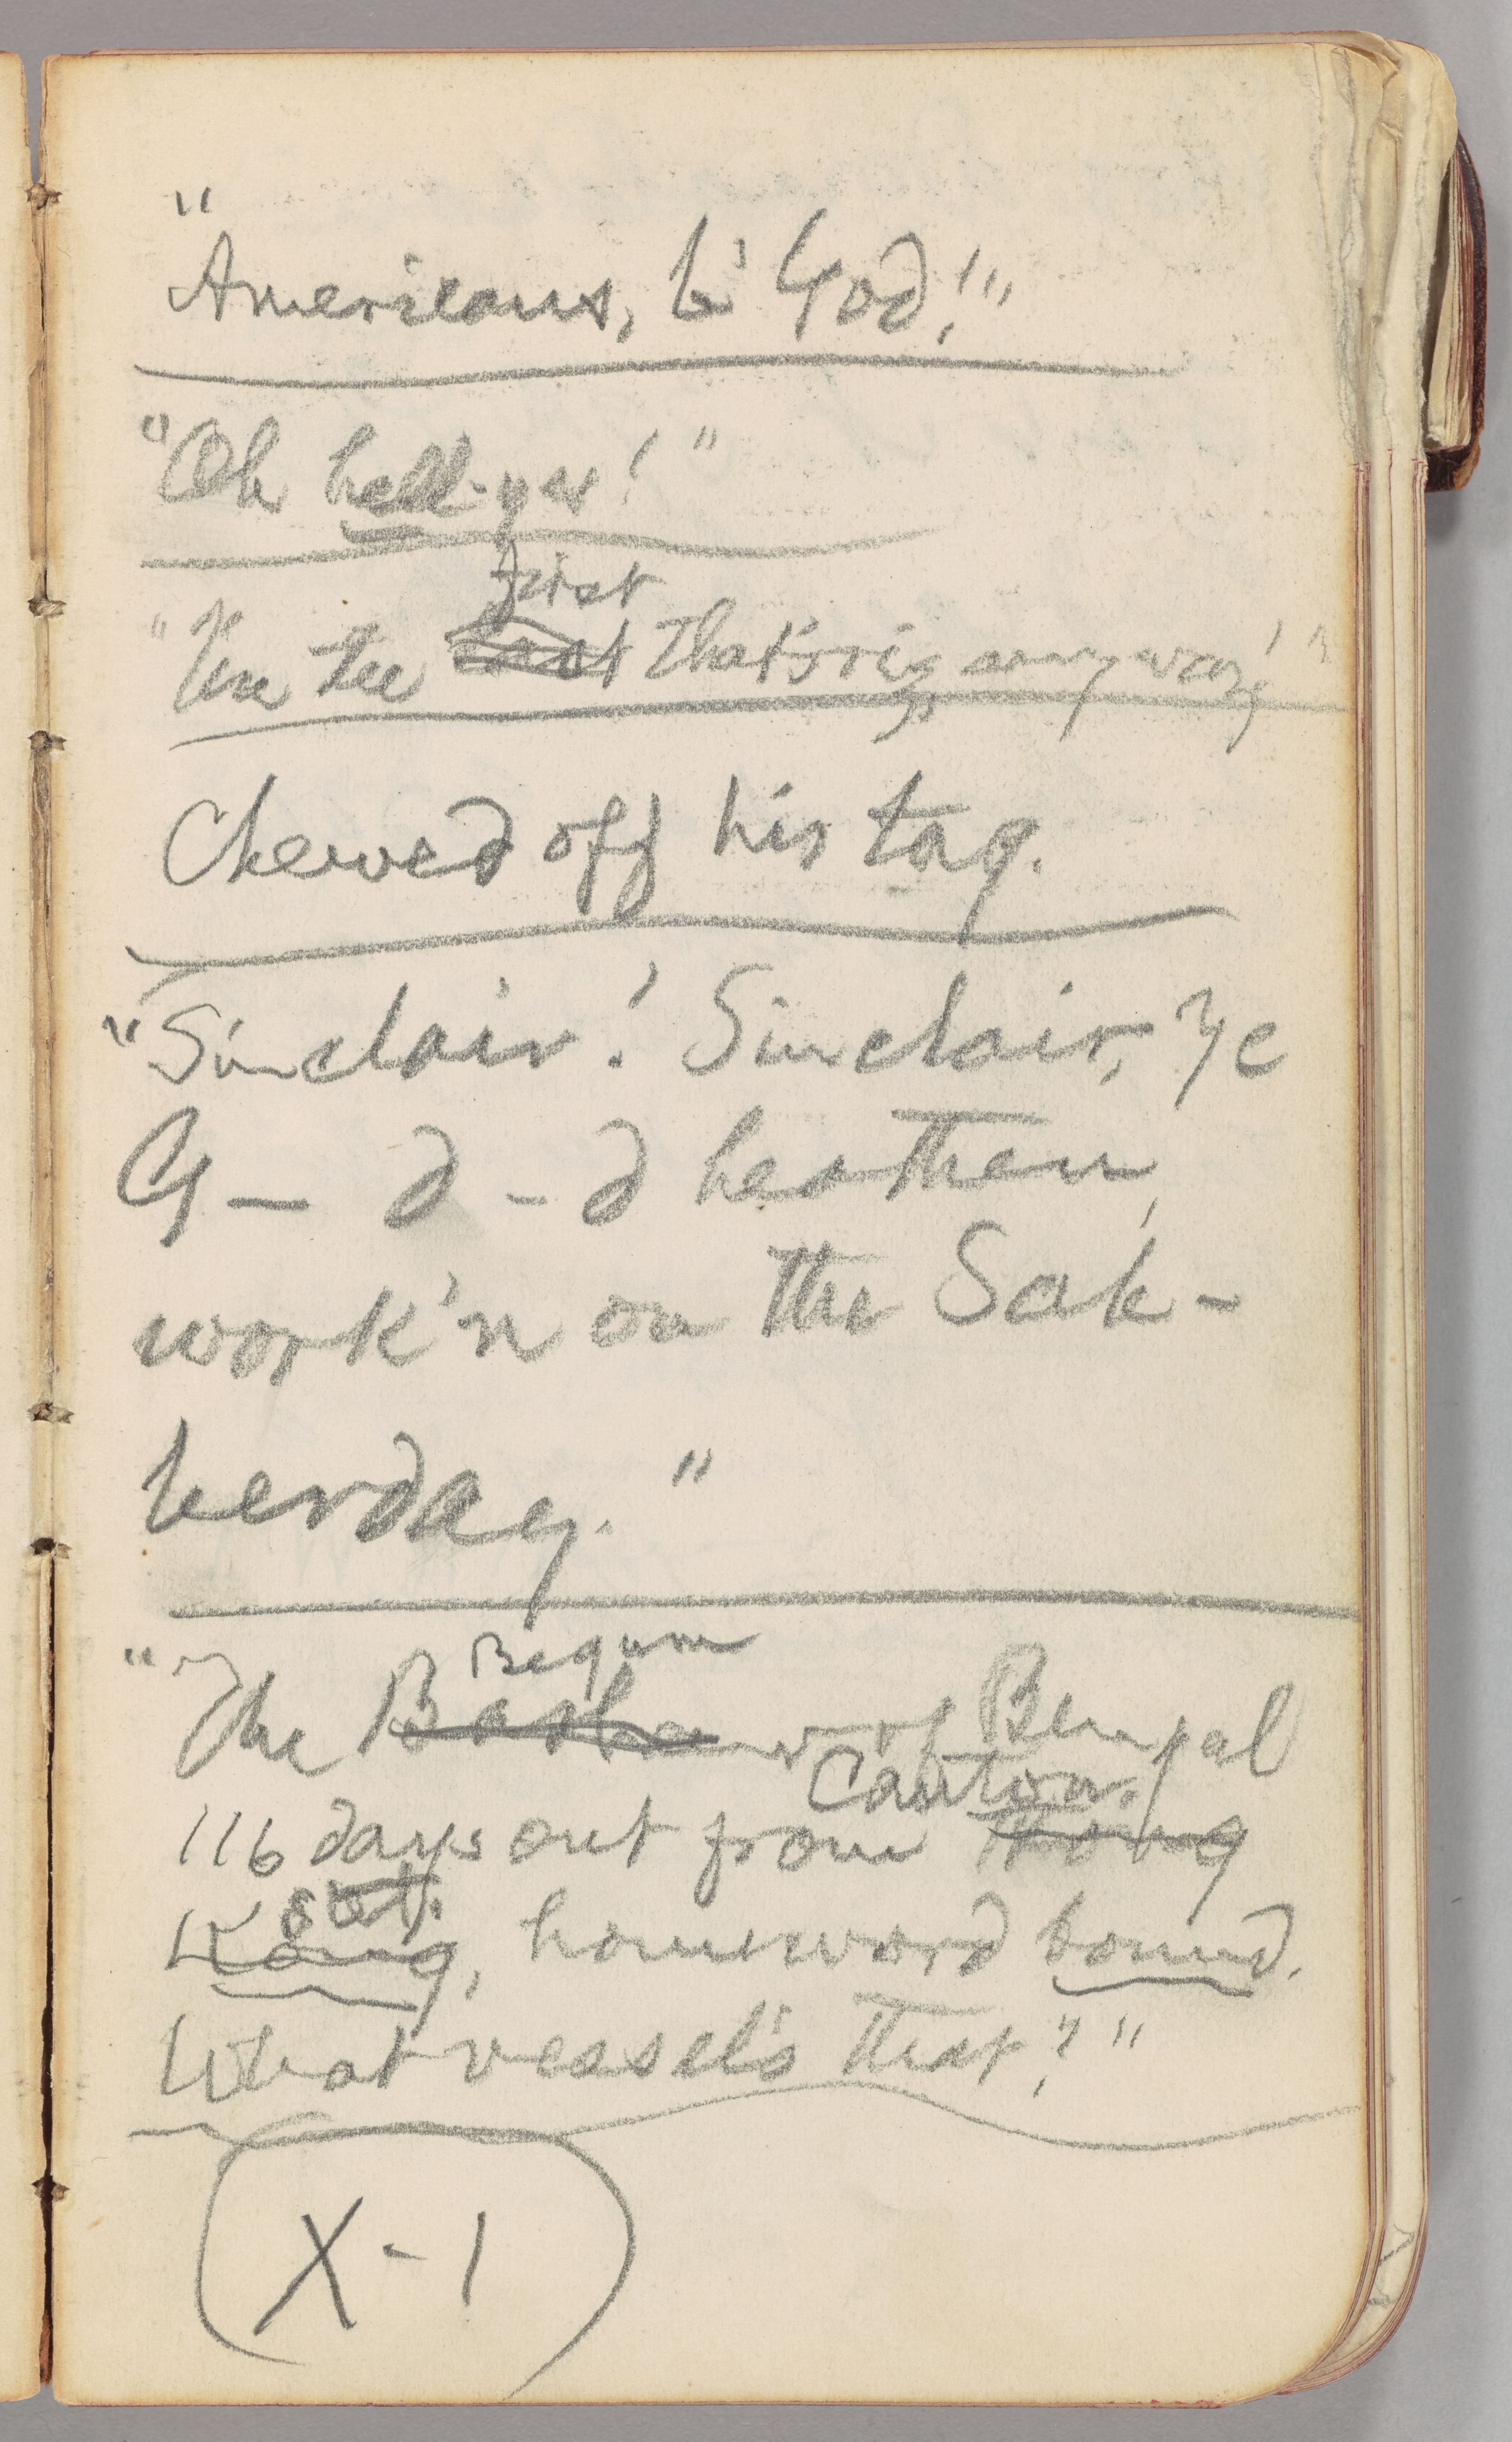 "Americans, b' God!"
"Oh hell-yes!"
first
"I'm the that's rig anyway!"
Chewed off his tag.
"Sinclair! Sinclair, ye
G— d-d heathen,
work'n on the Sab-
berday."
Begum
"The of Bengal
Canton.
116 days out from Hong
Kong, homeward bound.
What vessel's that?"
X-1